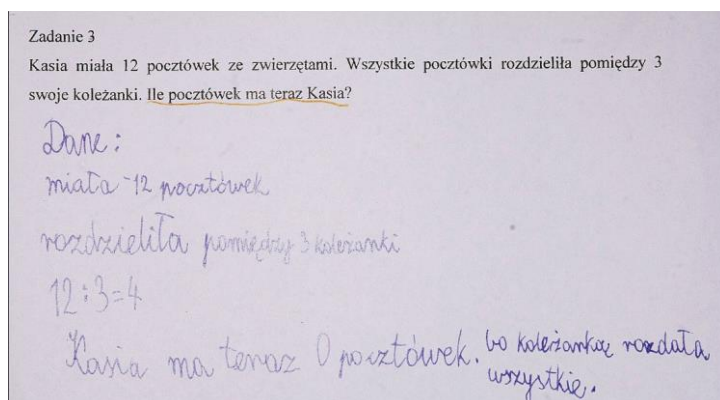 Zadanie 3
Kasia miała 12 pocztówek ze zwierzętami. Wszystkie pocztówki rozdzieliła pomiędzy 3
swoje koleżanki. Ile pocztówek ma teraz Kasia?
Dane:
miała -12 pocztówek
rozdzieliła pomiędzy 3 koleżanki
12:3=4
Kasia ma teraz 0 pocztówek. bo koleżanką rozdała
wszystkie.